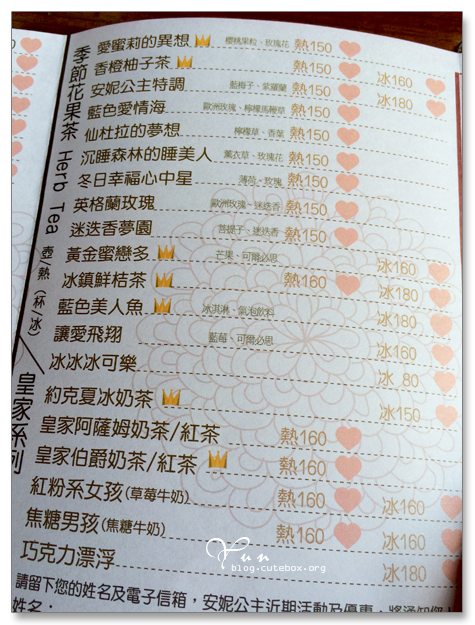 季節花果茶 Herb Tea 壺/熱(杯/冰)
愛蜜莉的異想 櫻桃果粒、玫瑰花 熱150
香橙柚子茶 熱150 冰160
安妮公主特調 藍梅子、紫羅蘭 熱150 冰180
藍色愛情海 歐洲玫瑰、檸檬馬鞭草 熱150
仙杜拉的夢想 檸檬草、香葉 熱150
沉睡森林的睡美人 薰衣草、玫瑰花 熱150
冬日幸福心中星 薄荷、玫瑰 熱150
英格蘭玫瑰 歐洲玫瑰、迷迭香 熱150
迷迭香夢園 菩提子、迷迭香 熱150
黃金蜜戀多 芒果、可爾必思 冰160
冰鎮鮮桔茶 熱160 冰180
藍色美人魚 冰淇淋、氣泡飲料 冰180
讓愛飛翔 藍莓、可爾必思 冰160
冰冰冰可樂 冰 80
皇家系列
約克夏冰奶茶 冰150
皇家阿薩姆奶茶/紅茶 熱160
皇家伯爵奶茶/紅茶 熱160
紅粉系女孩(草莓牛奶) 熱160 冰160
焦糖男孩(焦糖牛奶) 熱160 冰160
巧克力漂浮 冰180
請留下您的姓名及電子信箱，安妮公主近期活動及優惠，將通知您
姓名：
Yun
blog.cutebox.org